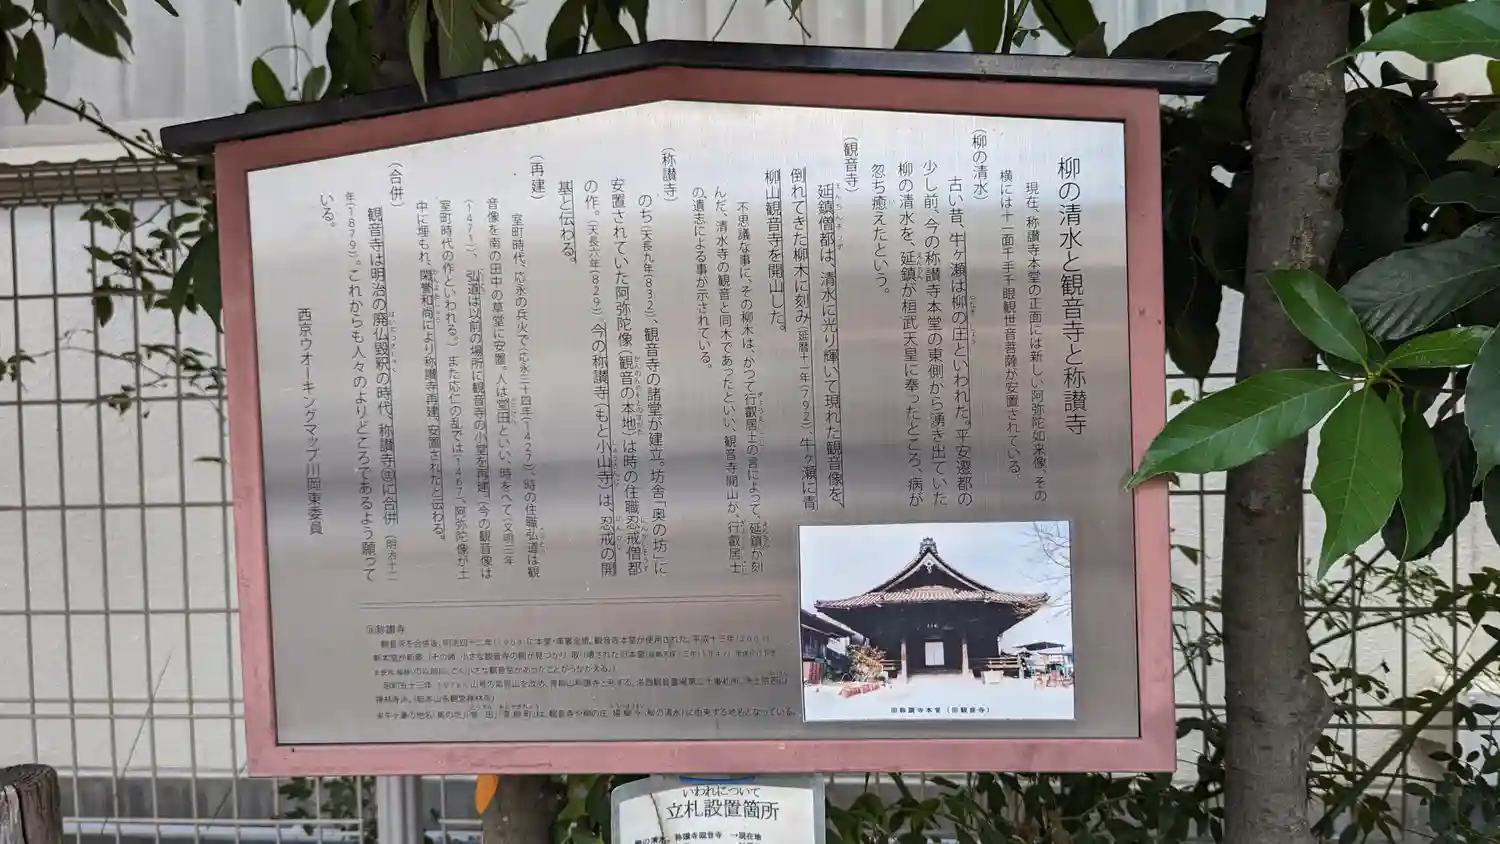 柳の清水と観音寺と称讃寺
現在、称讃寺本堂の正面には新しい阿弥陀如来像、その
横には十一面千手千眼観世音菩薩が安置されている。
(柳の清水)
古い昔、牛ヶ瀬は柳の庄といわれた。平安遷都の
少し前、今の称讃寺本堂の東側から湧き出ていた
柳の清水を、延鎮が桓武天皇に奉ったところ、病が
忽ち癒えたという。
(観音寺)
延鎮僧都は、清水に光り輝いて現れた観音像を、
倒れてきた柳木に刻み(延暦十一年(792)、牛ヶ瀬に青
柳山観音寺を開山した。
不思議な事に、その柳木は、かつて行叡居士の言によって、延鎮が刻
んだ、清水寺の観音と同木であったといい、観音寺開山が、行叡居士
の遺志による事が示されている。
(称讃寺)
のち(天長九年(832)、観音寺の諸堂が建立。坊舎「奥の坊」に
安置されていた阿弥陀像(観音の本地)は時の住職忍戒僧都
の作。(天長六年(829)。今の称讃寺(もと小山寺)は、忍戒の開
基と伝わる。
(再建)
室町時代、応永の兵火で(応永三十四年(1427)、時の住職弘道は観
音像を南の田中の草堂に安置。人は堂田といい、時をへて(文明三年
(1471)、弘道は以前の場所に観音寺の小堂を再建、(今の観音像は
室町時代の作といわれる。)また応仁の乱では(1467)、阿弥陀像が土
中に埋もれ、関誉和尚により称讃寺再建、安置されたと伝わる。
(合併)
観音寺は明治の廃仏毀釈の時代、称讃寺㊟に合併(明治十二
年(1879)。これからも人々のよりどころであるよう願って
いる。
西京ウオーキングマップ川岡東委員
㊟称讃寺
観音寺を合併後、明治四十二年(1909)に本堂・庫裏全焼、観音寺本堂が使用された。平成十三年(2001)
新本堂が新築
旧称讃寺本堂(旧観音寺)
いわれについて
立札設置箇所
柳の清水、称讃寺観音寺 →現在地